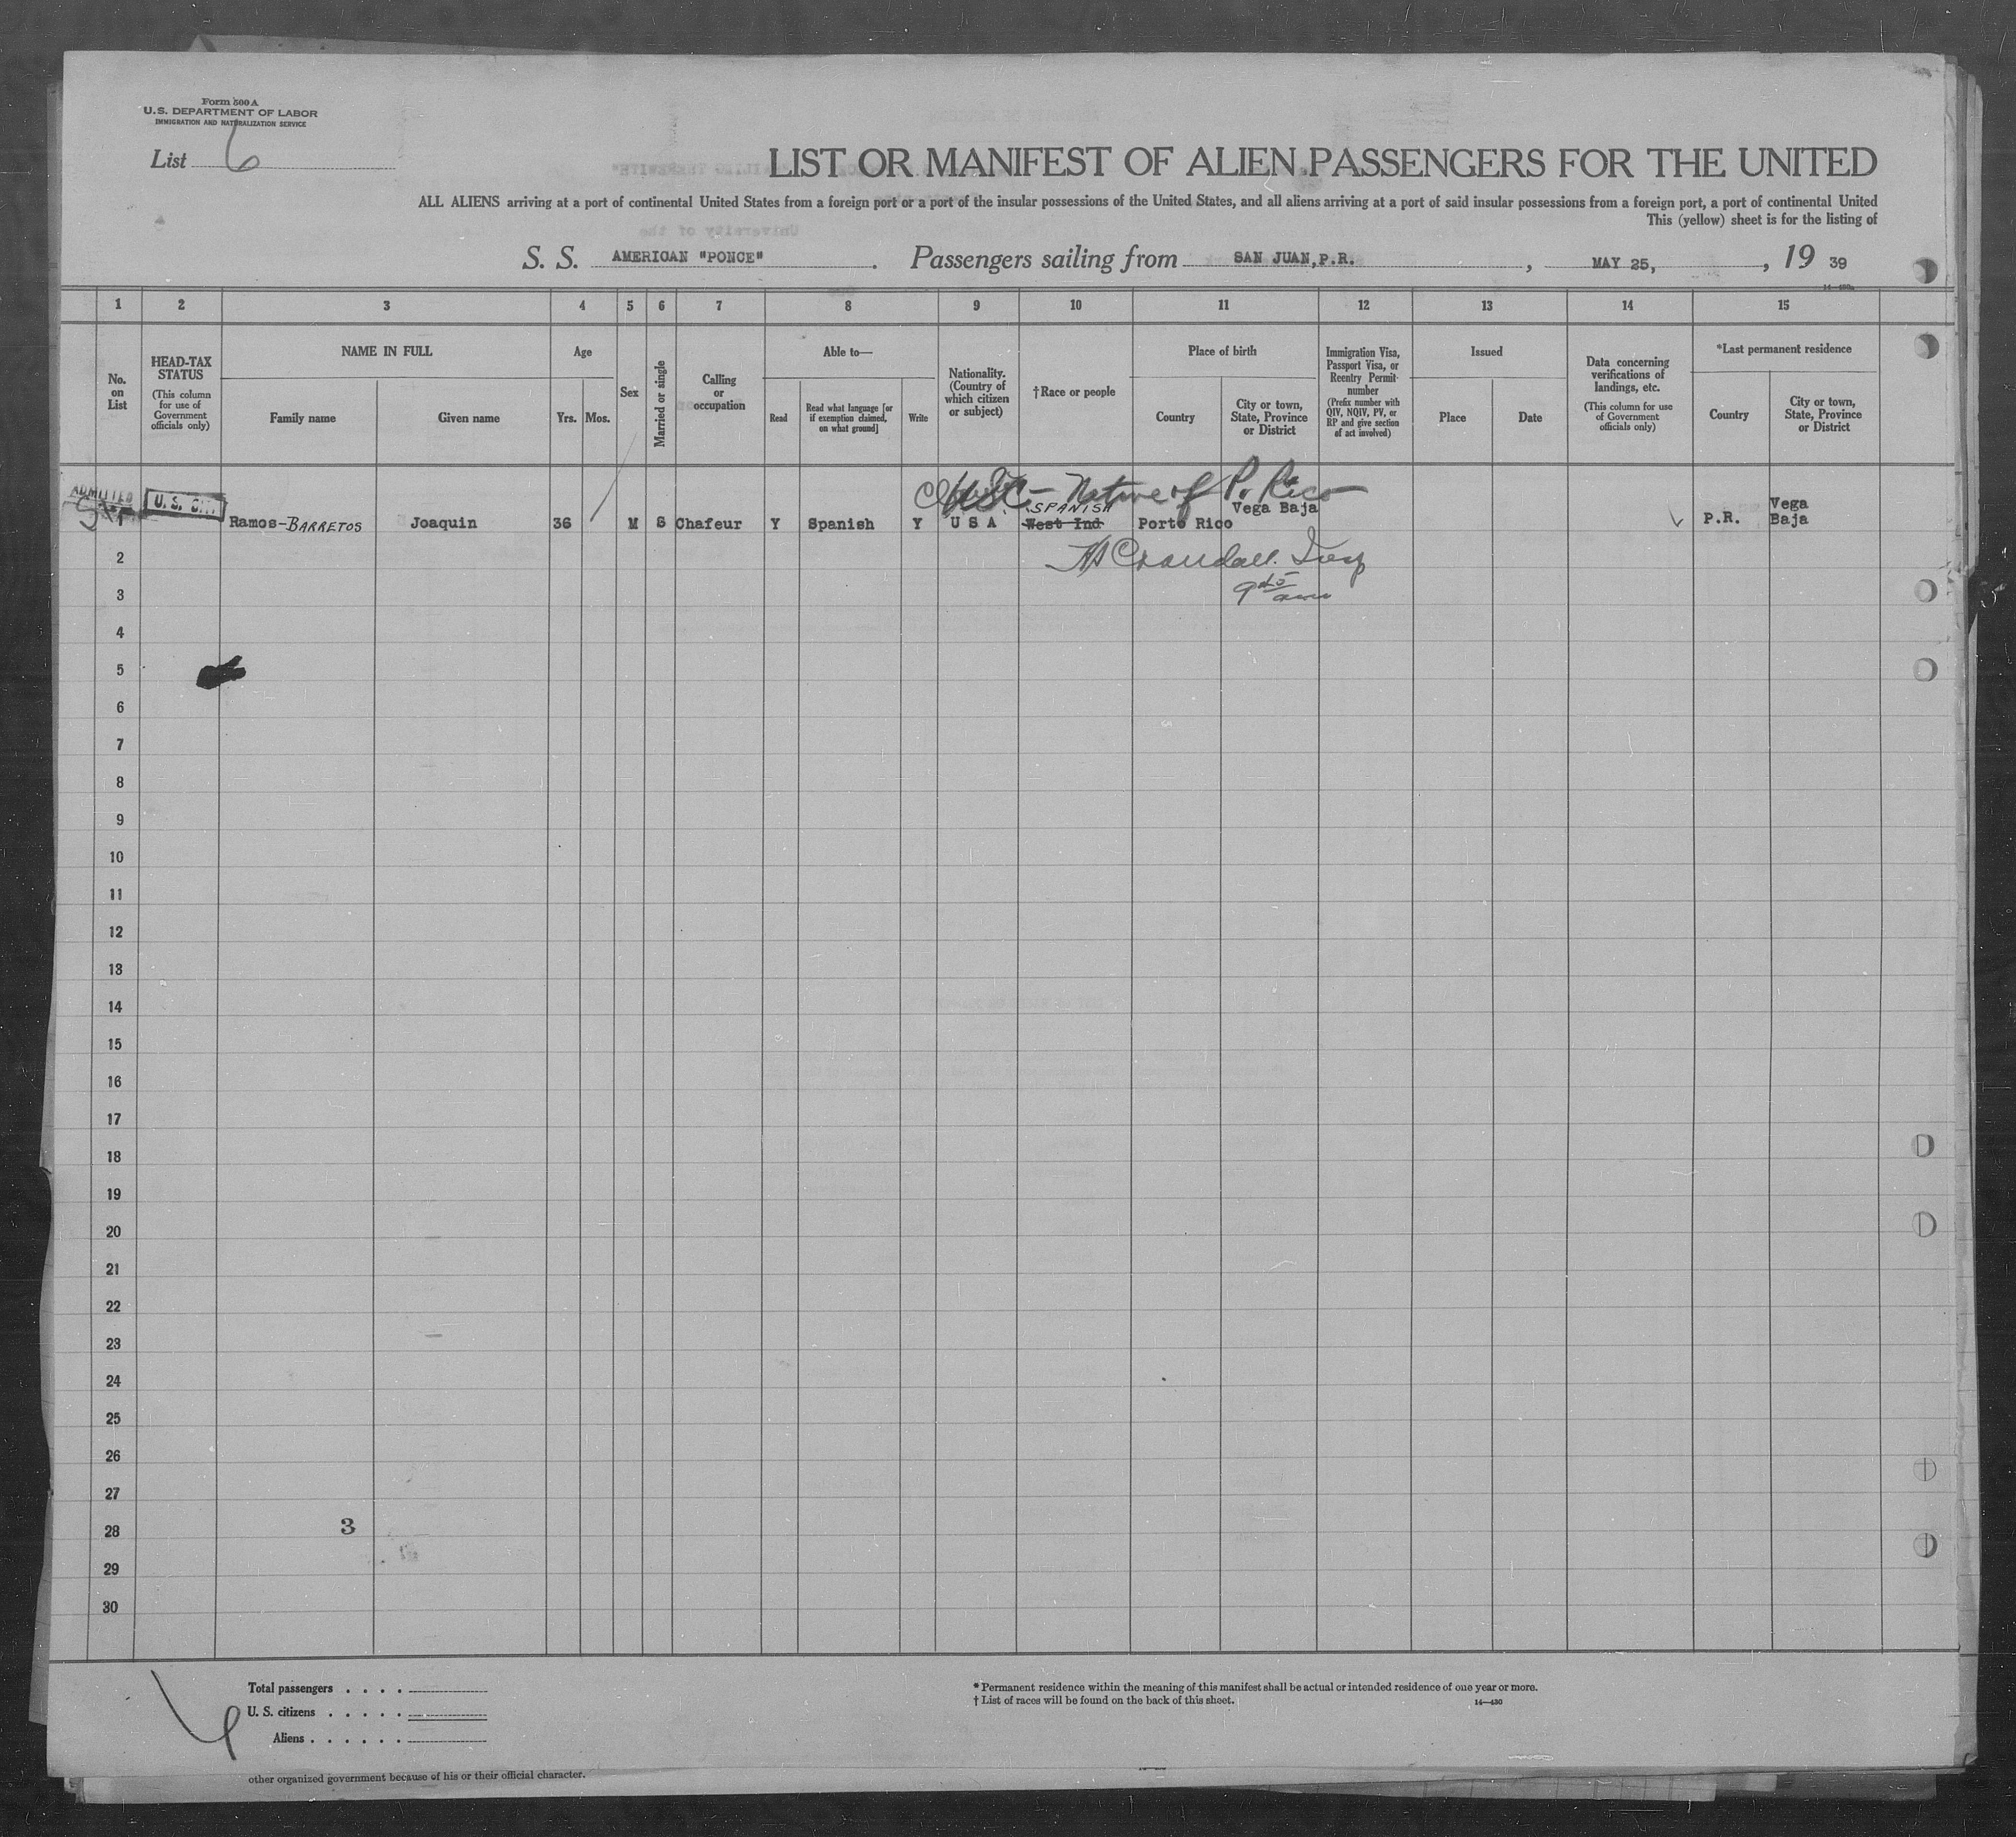 Form 500 A
U.S. DEPARTMENT OF LABOR
IMMIGRATION AND NATURALIZATION SERVICE
List 6
LIST OR MANIFEST OF ALIEN PASSENGERS FOR THE UNITED
ALL ALIENS arriving at a port of continental United States from a foreign port or a port of the insular possessions of the United States, and all aliens arriving at a port of said insular possessions from a foreign port, a port of continental United
This (yellow) sheet is for the listing of
S. S. AMERICAN "PONCE". Passengers sailing from SAN JUAN, P.R., MAY 25, , 19 39
1 2 3 4 5 6 7 8 9 10 11 12 13 14 15
No. on List
HEAD-TAX STATUS
(This column for use of Government officials only)
NAME IN FULL
Family name
Given name
Age
Yrs.
Mos.
Sex
Married or single
Calling or occupation
Able to—
Read
Read what language [or if exemption claimed, on what ground]
Write
Nationality. (Country of which citizen or subject)
†Race or people
Place of birth
Country
City or town, State, Province or District
Immigration Visa, Passport Visa, or Reentry Permit number
(Prefix number with QIV, NQIV, PV, or RP and give section of act involved)
Issued
Place
Date
Data concerning verifications of landings, etc.
(This column for use of Government officials only)
*Last permanent residence
Country
City or town, State, Province or District
ADMITTED
U. S. CIT
USC - Native of P. Rico
SPANISH
Vega Baja
1 Ramos-BARRETOS Joaquin 36 M S Chafeur Y Spanish Y U S A West Ind Porto Rico P.R. Vega Baja
Crandall. Insp
9 45 am
2
3
4
5
6
7
8
9
10
11
12
13
14
15
16
17
18
19
20
21
22
23
24
25
26
27
28 3
29
30
Total passengers . . . .
U. S. citizens . . . . .
Aliens . . . . . .
* Permanent residence within the meaning of this manifest shall be actual or intended residence of one year or more.
† List of races will be found on the back of this sheet.
14—430
other organized government because of his or their official character.